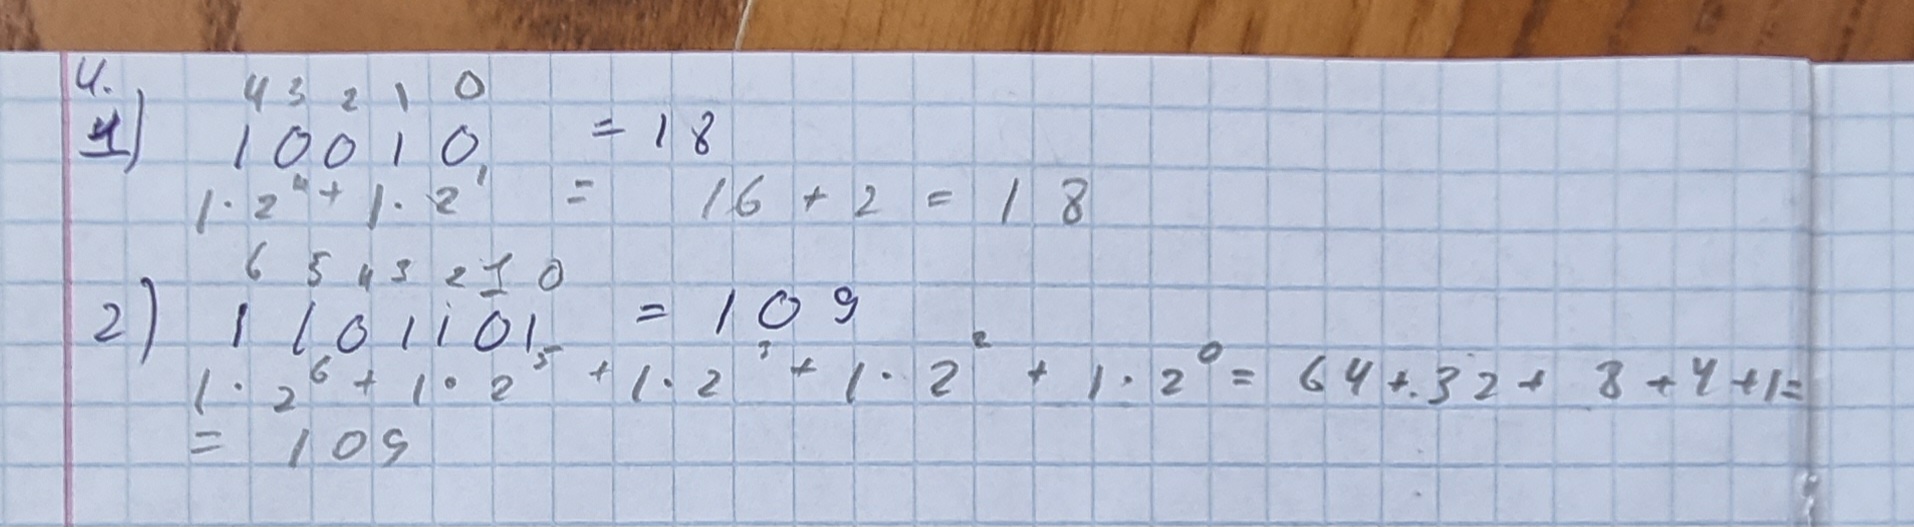 4.
4 3 2 1 0
1) 10010 = 18
1·2⁴ + 1·2¹ = 16 + 2 = 18
6 5 4 3 2 1 0
2) 1101101 = 109
1·2⁶ + 1·2⁵ + 1·2³ + 1·2² + 1·2⁰ = 64 + 32 + 8 + 4 + 1 =
= 109